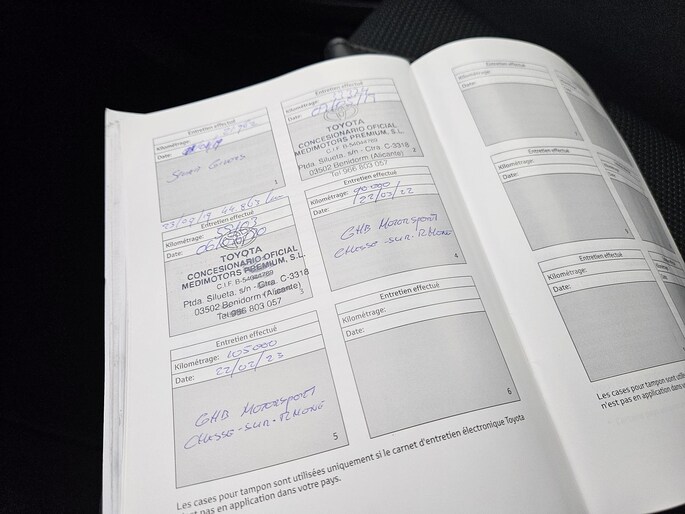 Entretien effectué
Kilométrage:
Date:
1
Entretien effectué
Kilométrage:
Date:
TOYOTA
CONCESIONARIO OFICIAL
MEDIMOTORS PREMIUM, S.L.
Ptda. Silueta, s/n - Ctra. C-3318
03502 Benidorm (Alicante)
Tel 966 803 057
2
Entretien effectué
Kilométrage:
Date:
TOYOTA
CONCESIONARIO OFICIAL
MEDIMOTORS PREMIUM, S.L.
Ptda. Silueta, s/n - Ctra. C-3318
03502 Benidorm (Alicante)
Tel 966 803 057
3
Entretien effectué
Kilométrage: 90000
Date: 22/03/22
GHB MOTORSPORT
4
Entretien effectué
Kilométrage: 105000
Date: 22/02/23
GHB MOTORSPORT
5
Entretien effectué
Kilométrage:
Date:
6
Les cases pour tampon sont utilisées uniquement si le carnet d'entretien électronique Toyota
n'est pas en application dans votre pays.
Entretien effectué
Kilométrage:
Date:
Entretien effectué
Kilométrage:
Date:
Entretien effectué
Kilométrage:
Date:
Les cases pour tampon sont utilisé
n'est pas en application dans